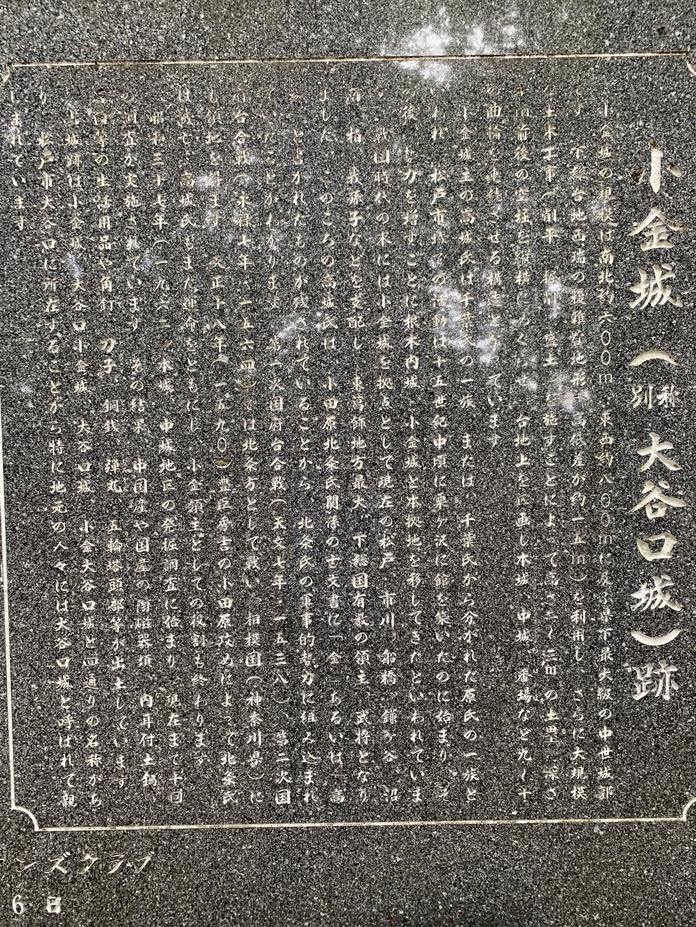 小金城（別称 大谷口城）跡
小金城の規模は南北約六〇〇m 東西約八〇〇mに及ぶ県下最大級の中世城郭
です 下総台地西端の複雑な地形 高低差が約一五m）を利用し さらに大規模
な土木工事（削平 盛土 を施すことによって高さ二〜三mの土塁 深さ
m前後の空堀を縦横にめぐらせ 台地上を区画し本城 中城 番場など九〜十
の曲輪を連結させる構造となっています
小金城主の高城氏は千葉氏の一族 または 千葉氏から分かれた原氏の一族と
いわれ 松戸市域での活動は十五世紀中頃に栗ヶ沢に館を築いたのに始まり その
後 力を増すごとに根木内城 小金城と本拠地を移してきたといわれていま
す 戦国時代の末には小金城を拠点として現在の松戸 市川 船橋 鎌ケ谷 沼
南 柏 我孫子などを支配し 東葛飾地方最大 下総国有数の領主 武将となり
ました このころの高城氏は 小田原北条氏関係の古文書に「金」あるいは「高
城」と書かれたものが残されていることから 北条氏の軍事的勢力に組み込まれ
ていたことがわかります 第一次国府台合戦（天文七年 一五三八）、第二次国
府台合戦（永禄七年 一五六四）では北条方として戦い 相模国（神奈川県）に
も領地を得ます 天正十八年（一五九〇）豊臣秀吉の小田原攻めによって北条氏
は滅亡 高城氏もまた運命をともにし 小金領主としての役割も終わります
昭和三十七年（一九六二 本城 中城地区の発掘調査に始まり 現在まで十回
の調査が実施されています その結果 中国産や国産の陶磁器類 内耳付土鍋
石臼等の生活用品や角釘 刀子 銅銭 弾丸 五輪塔頭部等が出土しています
小金城跡は小金城 大谷口小金城 大谷口城 小金大谷口城と四通りの名称があ
り 松戸市大谷口に所在することから特に地元の人々には大谷口城と呼ばれて親
しまれています
ンズクラブ
6日